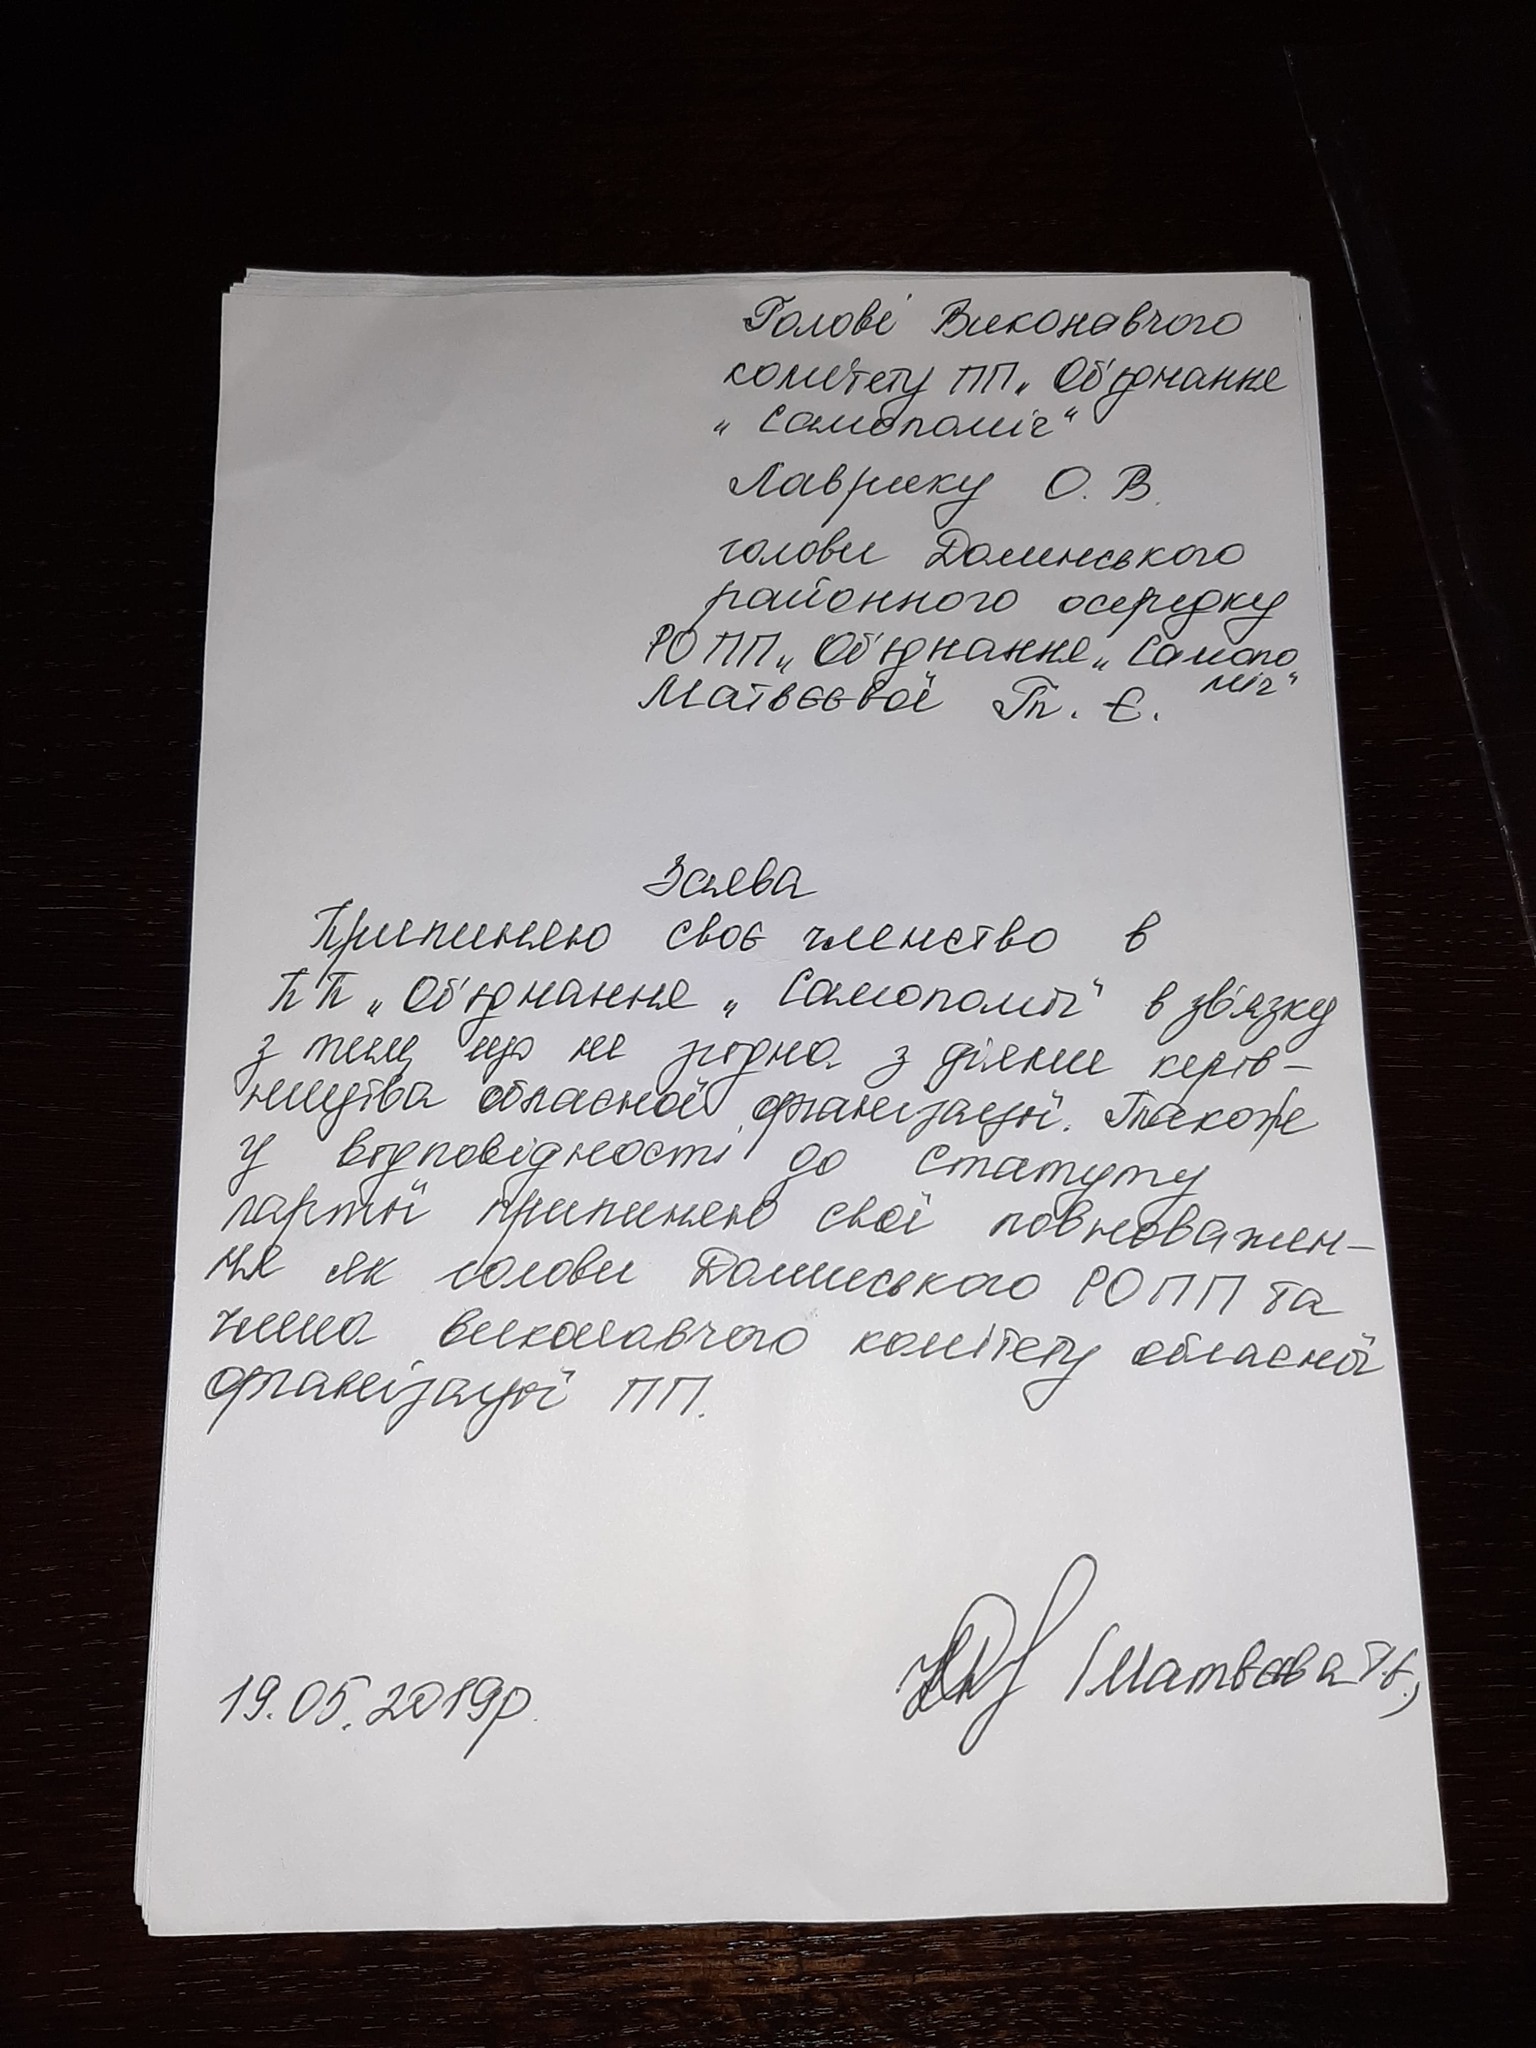 Голові Виконавчого
комітету ПП „Об'єднання
„Самопоміч“
Лаврику О. В.
голови Долинського
районного осередку
РО ПП „Об'єднання „Самопо
міч“
Матвєєвої Т. Є.
Заява
Припиняю своє членство в
ПП „Об'єднання „Самопоміч“ в зв'язку
з тим, що не згідна з діями керів-
ництва обласної організації. Також
у відповідності до статуту
партії припиняю свої повноважен-
ня як голови Долинського РО ПП та
члена виконавчого комітету обласної
організації ПП.
19.05.2019р.
(Матвєєва Т.Є.)